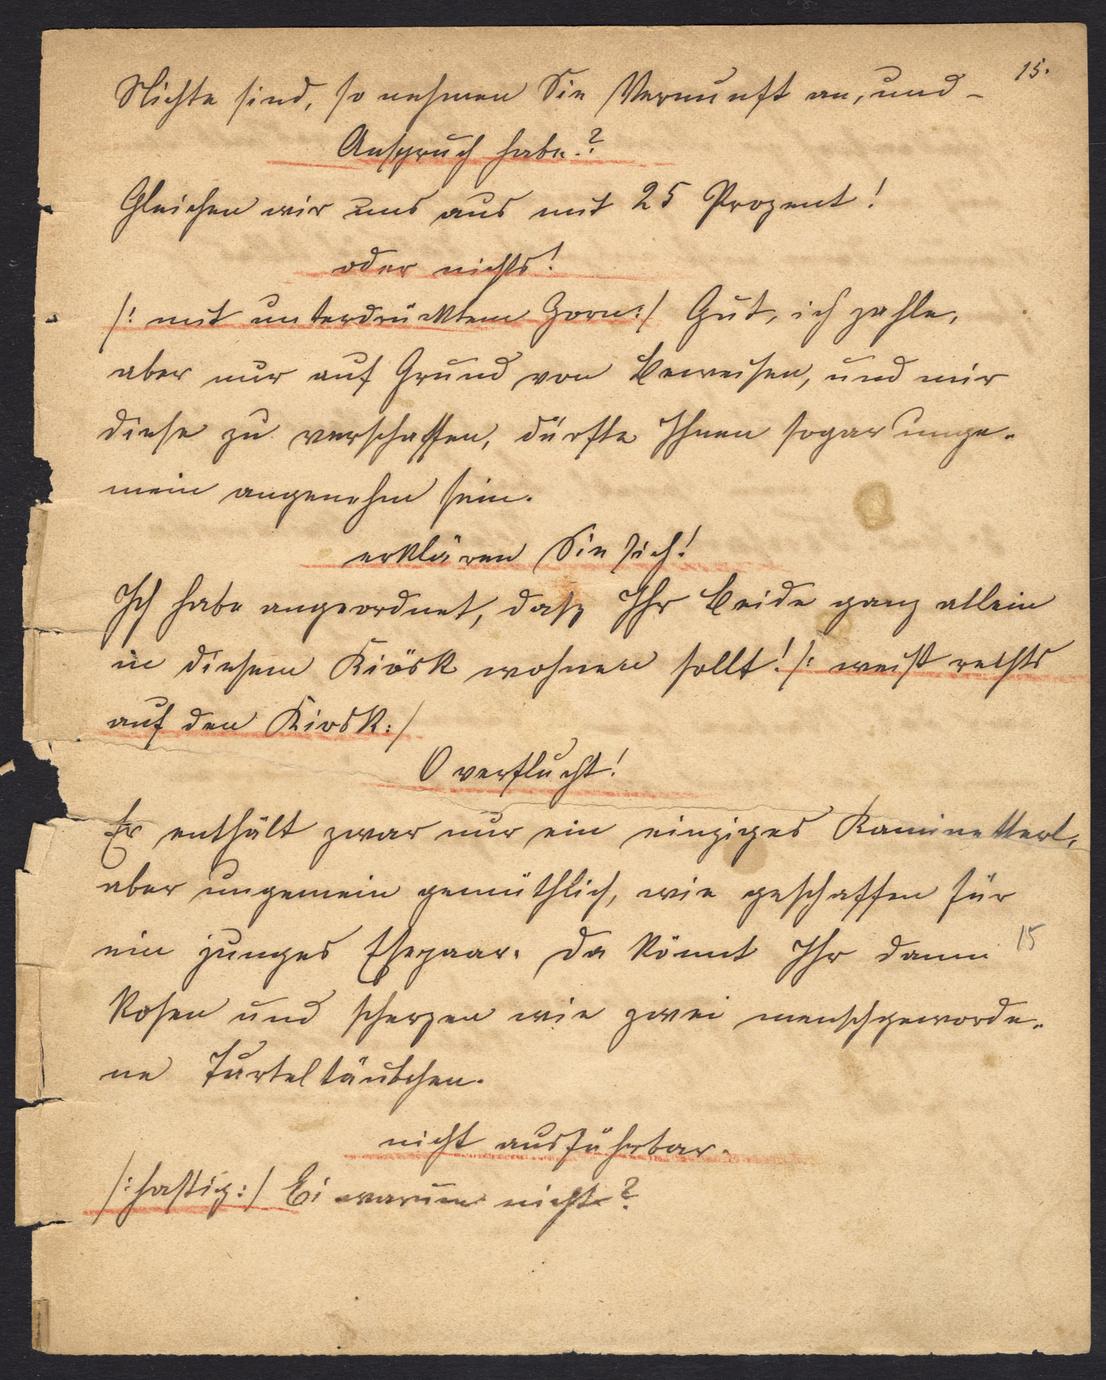 15.
Nichte sind, so nehmen Sie Vernunft an, und –
Anspruch habe.?
Gleichen wir uns aus mit 25 Prozent!
oder nichts!
/: mit unterdrücktem Zorn:/ Gut, ich zahle,
aber nur auf Grund von Beweisen, und mir
diese zu verschaffen, dürfte Ihnen sogar unge-
mein angenehm sein.
erklären Sie sich!
Ich habe angeordnet, dass Ihr Beide ganz allein
in diesem Kiosk wohnen sollt! /: weist rechts
auf den Kiosk:/
O verflucht!
Er enthält zwar nur ein einziges Kaminetterl,
aber ungemein gemüthlich, wie geschaffen für
ein junges Ehepaar. Da könnt Ihr dann
15
kosen und scherzen wie zwei menschgeworde-
ne Turteltäubchen.
nicht ausführbar.
/:hastig:/ Ei warum nicht?